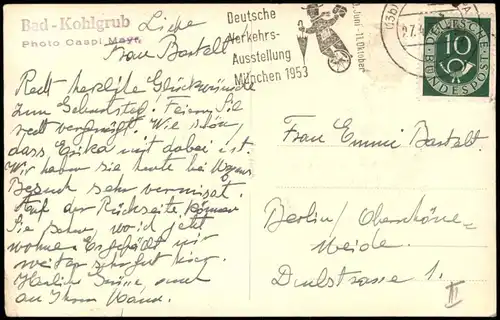 Bad-Kohlgrub
Photo Caspi Mayr
Deutsche
Verkehrs-
Ausstellung
München 1953
Juni - 11. Oktober
(13b)
DEUTSCHE
BUNDESPOST
10
Liebe
Frau Bartelt
Recht herzliche Glückwünsche
zum Geburtstag. Feiern Sie
recht vergnügt. Wie schön,
dass Erika mit dabei ist.
Wir haben sie heute bei
Besuch sehr vermisst.
Auf der Rückseite können
Sie sehen, wo ich jetzt
wohne. Es gefällt mir
weiter sehr gut hier.
Herzliche Grüsse, auch
an Ihren Mann.
Frau Emmi Bartelt.
Berlin / Oberschöne-
weide.
1.
II